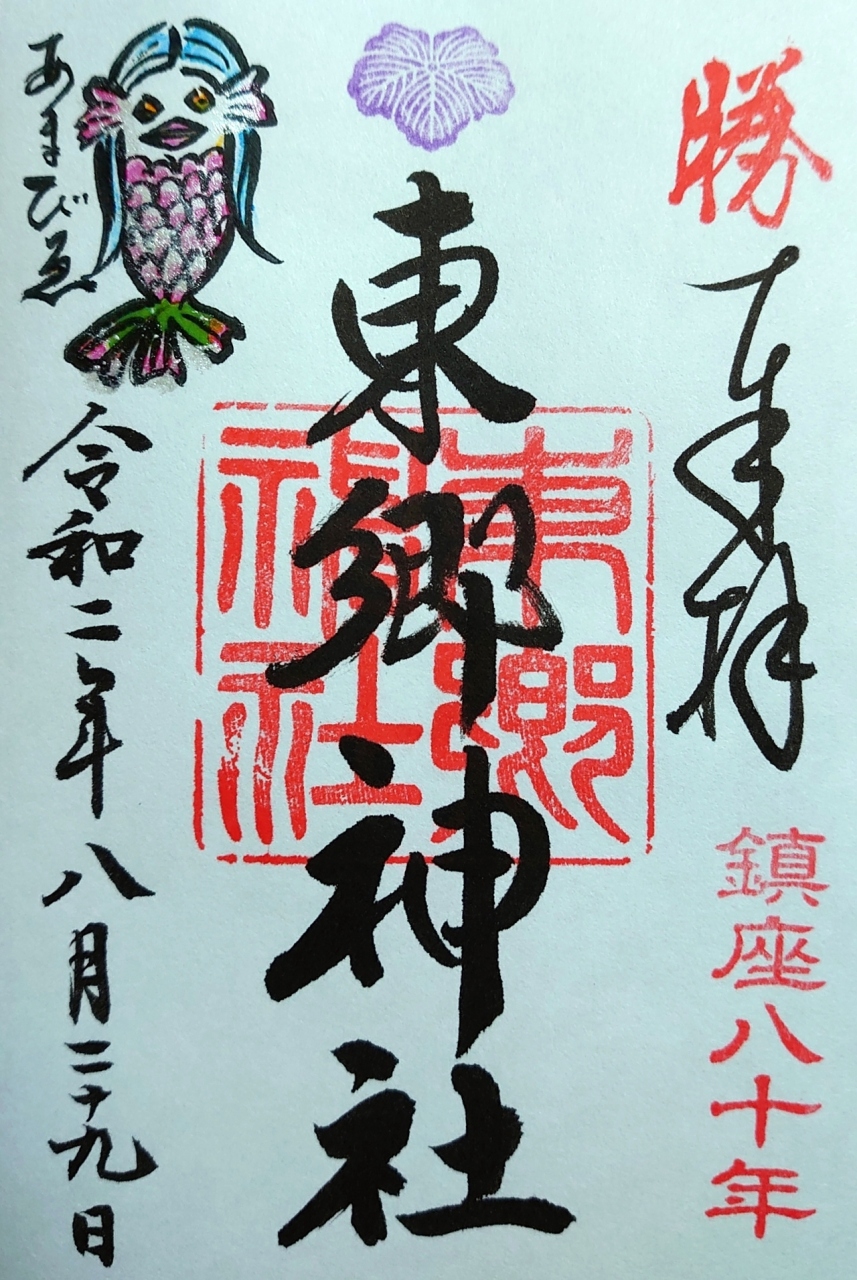 勝
奉拝
鎮座八十年
東郷神社
東郷神社
あまびゑ
令和二年八月二十九日